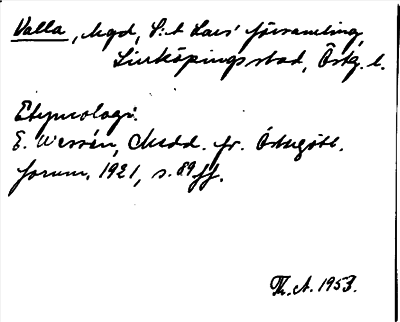 Valla, Mgd, S:t Lars' församling,
Linköpings stad, Östg. l.
Etymologi.
E. Wessén, Medd. fr. Östergötl.
fornm. 1921, s. 89 ff.
Th. A. 1953.